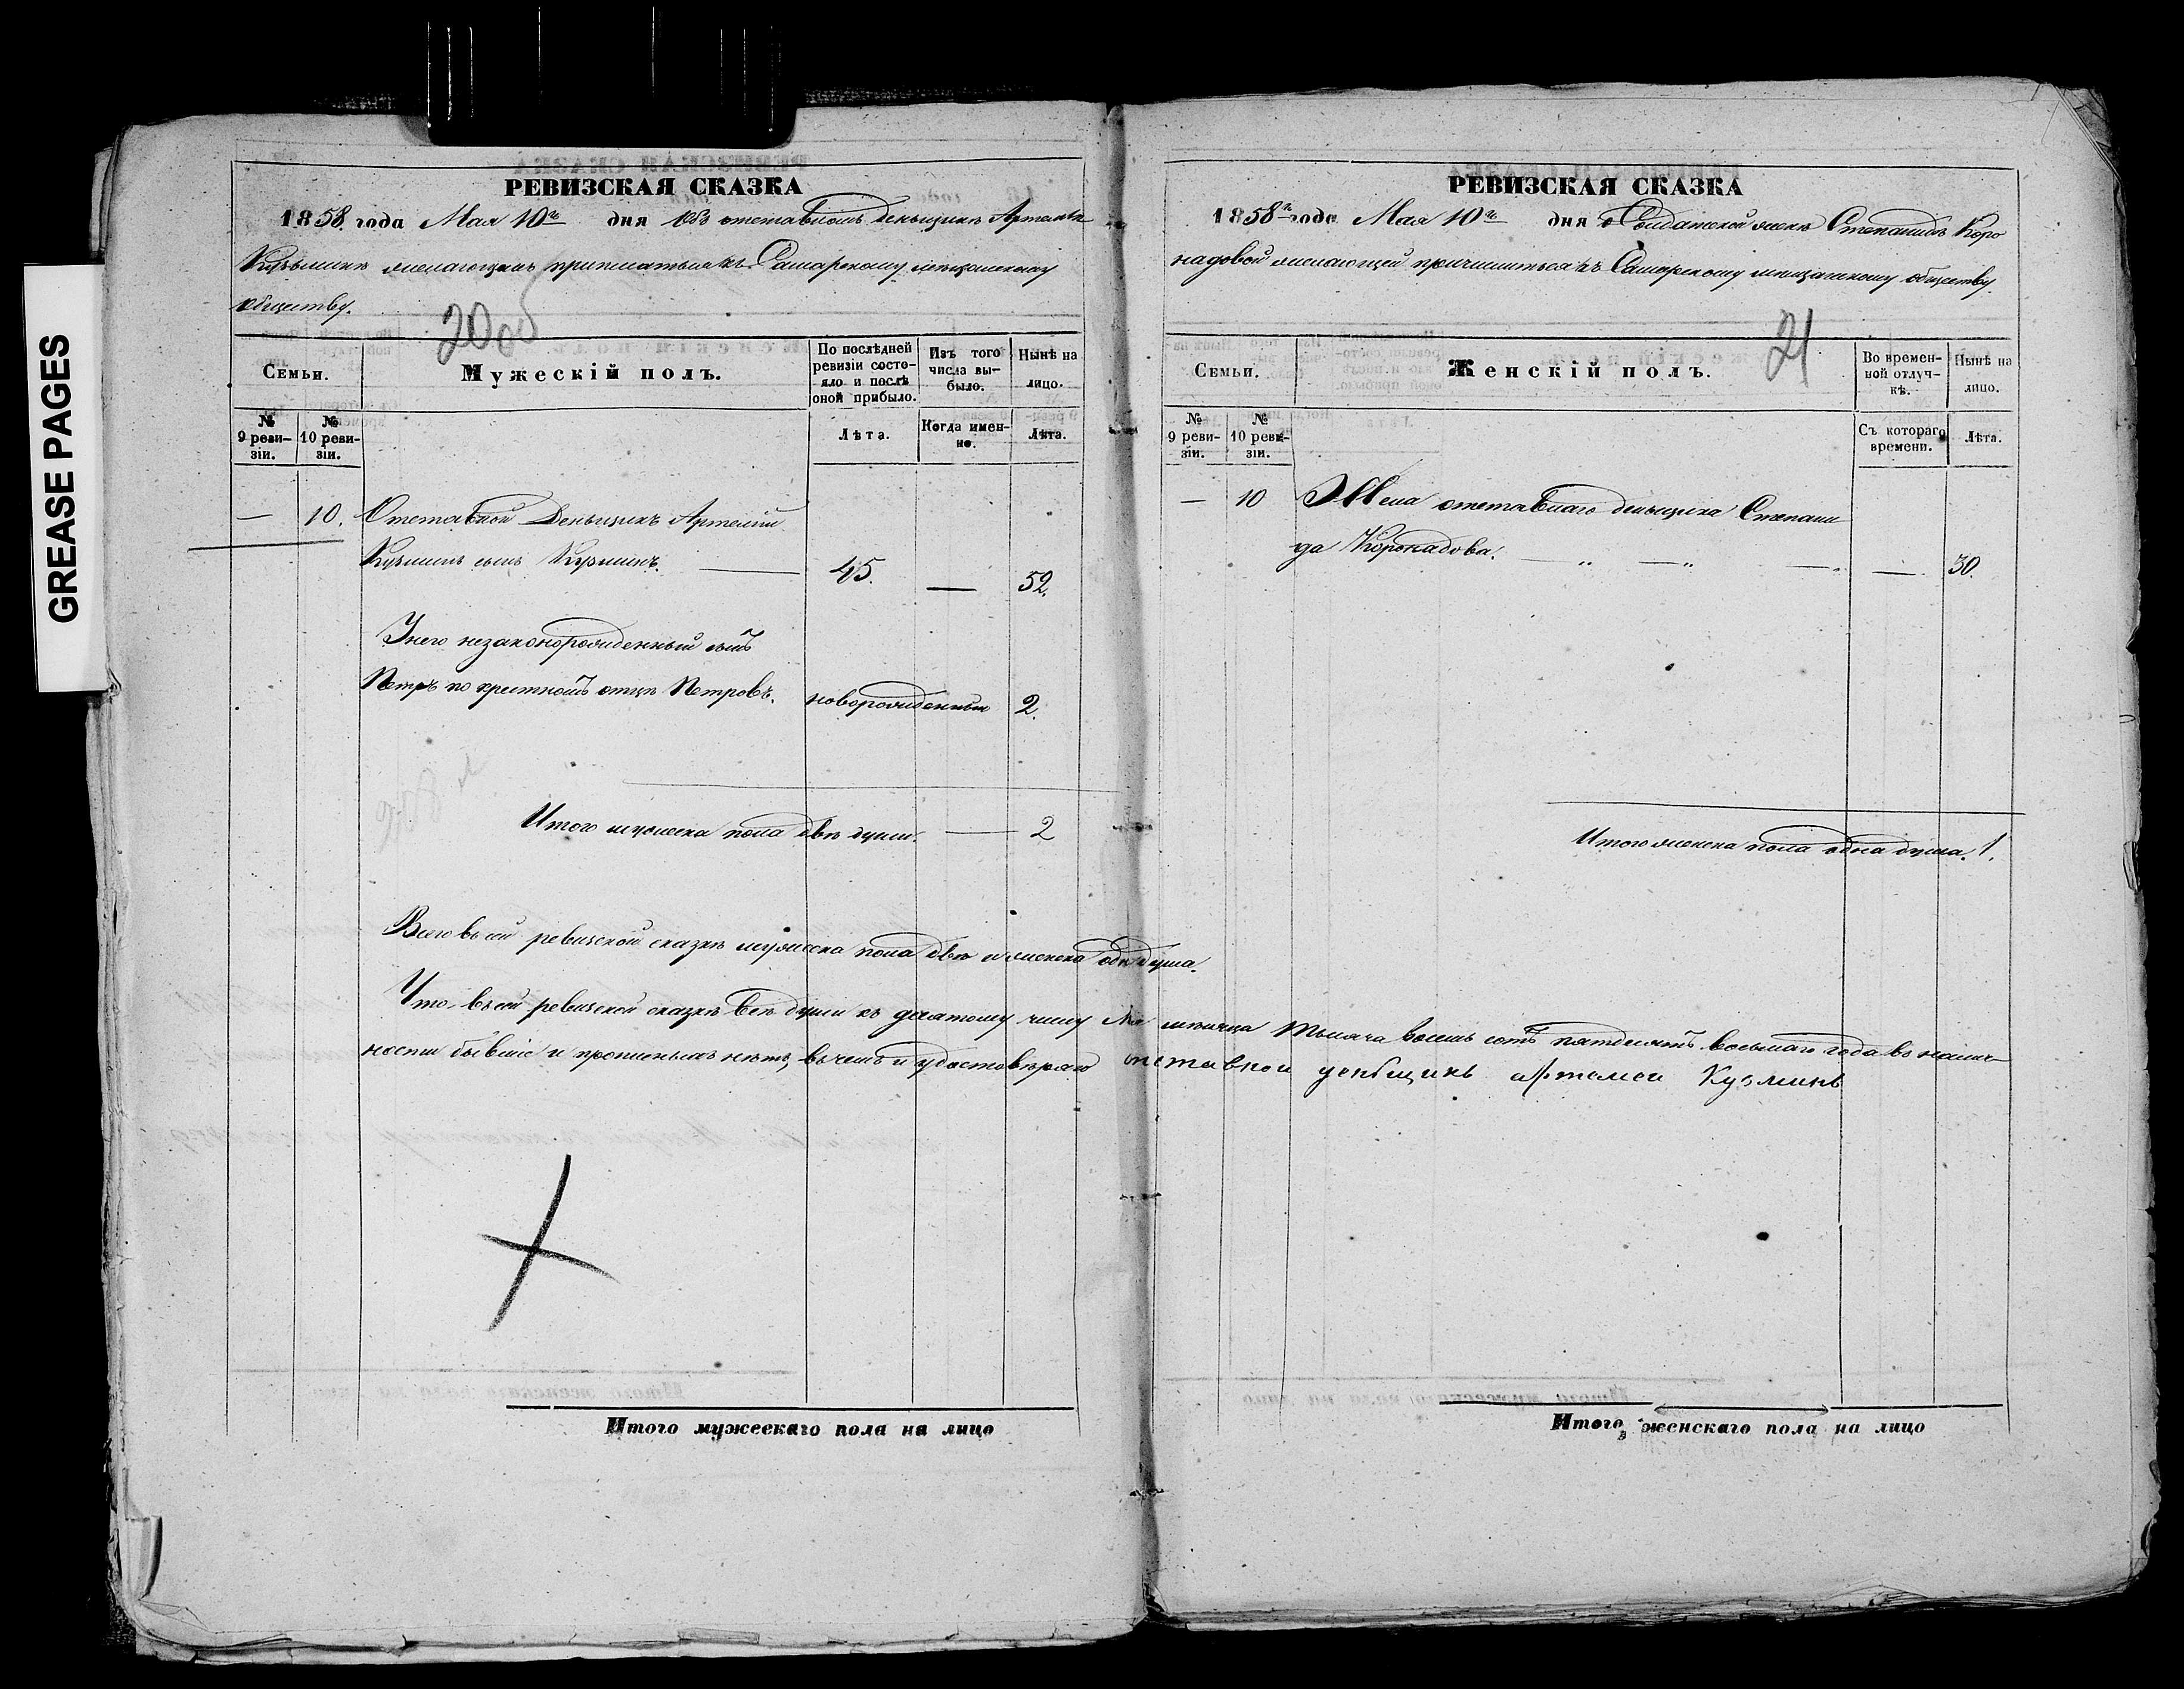 GREASE PAGES
РЕВИЗСКАЯ СКАЗКА
1858. года Мая 10го дня Объ отставномъ деньщикѣ Артемьѣ
Кузьминѣ желающемъ приписаться къ Самарскому мещанскому
обществу.
20об
Семьи.
Мужескій полъ.
По послѣдней ревизіи состояло и послѣ оной прибыло.
Изъ того числа выбыло.
Нынѣ на лицо.
№ 9 ревизіи.
№ 10 ревизіи.
Лѣта.
Когда именно.
Лѣта.
— 10. Отставной Деньщикъ Артемій
Кузминъ сынъ Кузминъ. — 45. — 52.
У него незаконорожденный сынъ
Петръ по крестномъ отцѣ Петровъ. новорожденный 2.
Итого мужеска пола двѣ души. — 2
Всего въ сей ревизской сказкѣ мужеска пола двѣ и женска одна душа.
Что въ сей ревизской сказкѣ всѣ души къ десятому числу Мая мѣсяца тысяча восемь сотъ пятдесятъ восьмаго года въ налич-
ности бывшіе и прописныхъ нѣтъ, въ чемъ и удостовѣряю отставной деньщикъ артемеи Кузминъ
Итого мужескаго пола на лицо
РЕВИЗСКАЯ СКАЗКА
1858го года Мая 10го дня о Солдатской женѣ Степанидѣ Коро
надовой желающей причислиться къ Самарскому мещанскому обществу.
21
Семьи.
Женскій полъ.
Во временной отлучкѣ.
Нынѣ на лицо.
№ 9 ревизіи.
№ 10 ревизіи.
Съ котораго времени.
Лѣта.
— 10 Жена отставнаго деньщика Степани
да Коронадова. — „ — „ — — 30.
Итого женска пола одна душа. 1.
Итого женскаго пола на лицо